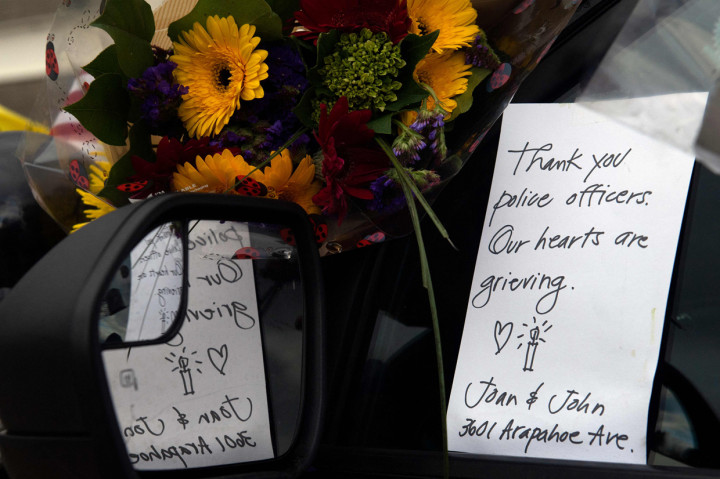 Thank you
police officers.
Our hearts are
grieving.
Joan & John
3601 Arapahoe Ave.